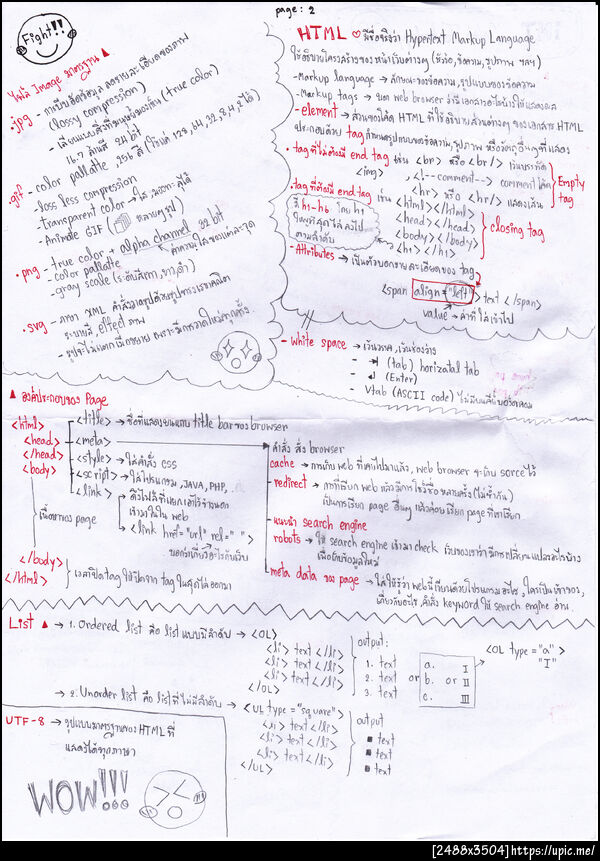 page : 2
Fight!!
ไฟล์ Image มาตรฐาน
.jpg - การบีบอัดข้อมูล ลดรายละเอียดของภาพ
(lossy compression)
(true color)
16.7 ล้านสี 24 bit
.gif - color pallatte 256 สี (ใช้แค่ 128, 64, 32, 8, 4, 2 ได้)
- loss less compression
- transparent color →
- Animate GIF ( หลายๆรูป )
.png - true color + alpha channel 32 bit
- color pallatte
- gray scale (ระดับสีเทา, ขาวดำ)
.svg - ภาษา XML
effect ภาพ
HTML มีชื่อจริงว่า Hypertext Markup Language
ใช้อธิบายโครงสร้างของ หน้าเว็บต่างๆ (หัวข้อ, ข้อความ, รูปภาพ ฯลฯ)
- Markup language → ลักษณะของข้อความ, รูปแบบของข้อความ
- Markup tags → บอก web browser ว่ามีเอกสารอะไรบ้างให้แสดงผล
- element → ส่วนของโค้ด HTML ที่ใช้อธิบายส่วนต่างๆ ของเอกสาร HTML
ประกอบด้วย tag กำหนดรูปแบบของข้อความ, รูปภาพ หรือวัตถุอื่นๆที่แสดง
. tag ที่ไม่ต้องมี end tag เช่น <br> หรือ <br /> เว้นบรรทัด
<img> , <!--comment--> comment โค้ด
<hr> หรือ <hr /> แสดงเส้น
Empty tag
. tag ที่ต้องมี end tag เช่น <html></html>
<head></head>
<body></body>
<h1></h1>
closing tag
มี h1-h6 โดย h1
ใหญ่ที่สุดไล่ลงไป
ตามลำดับ
- Attributes → เป็นตัวบอกรายละเอียดของ tag
<span align = "left"> text </span>
value → ค่าที่ใส่เข้าไป
- White space → เว้นวรรค, เว้นช่องว่าง
- (tab) horizatal tab
- (Enter)
- Vtab (ASCII code)
องค์ประกอบของ Page
<html>
<head>
</head>
<body>
เนื้อหาของ page
</body>
</html>
<title> → ชื่อที่แสดงบนแถบ title bar ของ browser
<meta>
<style> → ใส่คำสั่ง CSS
<script> → ใส่โปรแกรม, JAVA, PHP, ..
<link> → ดึงไฟล์ที่แยกเอาไว้ข้างนอก
เข้ามาใช้ใน web
<link href="url" rel=" ">
บอกว่าเกี่ยวอะไรกับเว็บ
คำสั่ง สั่ง browser
cache → การเก็บ web ที่เคยไปมาแล้ว, web browser จะเก็บ sorce ไว้
- redirect →
เป็นการเรียก page อื่นๆ แล้วค่อยเรียก page ที่เราเรียก
- แนะนำ search engine
robots → ให้ search engine เข้ามา check เว็บของเราว่ามีการเปลี่ยนแปลงอะไรบ้าง
เพื่ออัพข้อมูลใหม่
- meta data ของ page → ใส่ให้รู้ว่า web นี้เขียนด้วยโปรแกรมอะไร, ใครเป็นเจ้าของ,
เกี่ยวกับอะไร, คำสั่ง keyword ให้ search engine อ่าน.
เวลาปิด tag ให้ปิดจาก tag ในสุดไล่ออกมา
List → 1. Ordered list คือ list แบบมีลำดับ → <OL>
<li> text </li>
<li> text </li>
<li> text </li>
</OL>
output:
1. text
2. text
3. text
or
a.
b.
c.
or
I
II
III
<OL type = "a">
"I"
→ 2. Unorder list คือ list ที่ไม่มีลำดับ → <UL type = "square">
<li> text </li>
<li> text </li>
<li> text </li>
<li> text </li>
</UL>
output
■ text
■ text
■ text
UTF-8 → รูปแบบมาตรฐานของ HTML ที่
แสดงได้ทุกภาษา
WOW!!!
[2488x3504]https://upic.me/